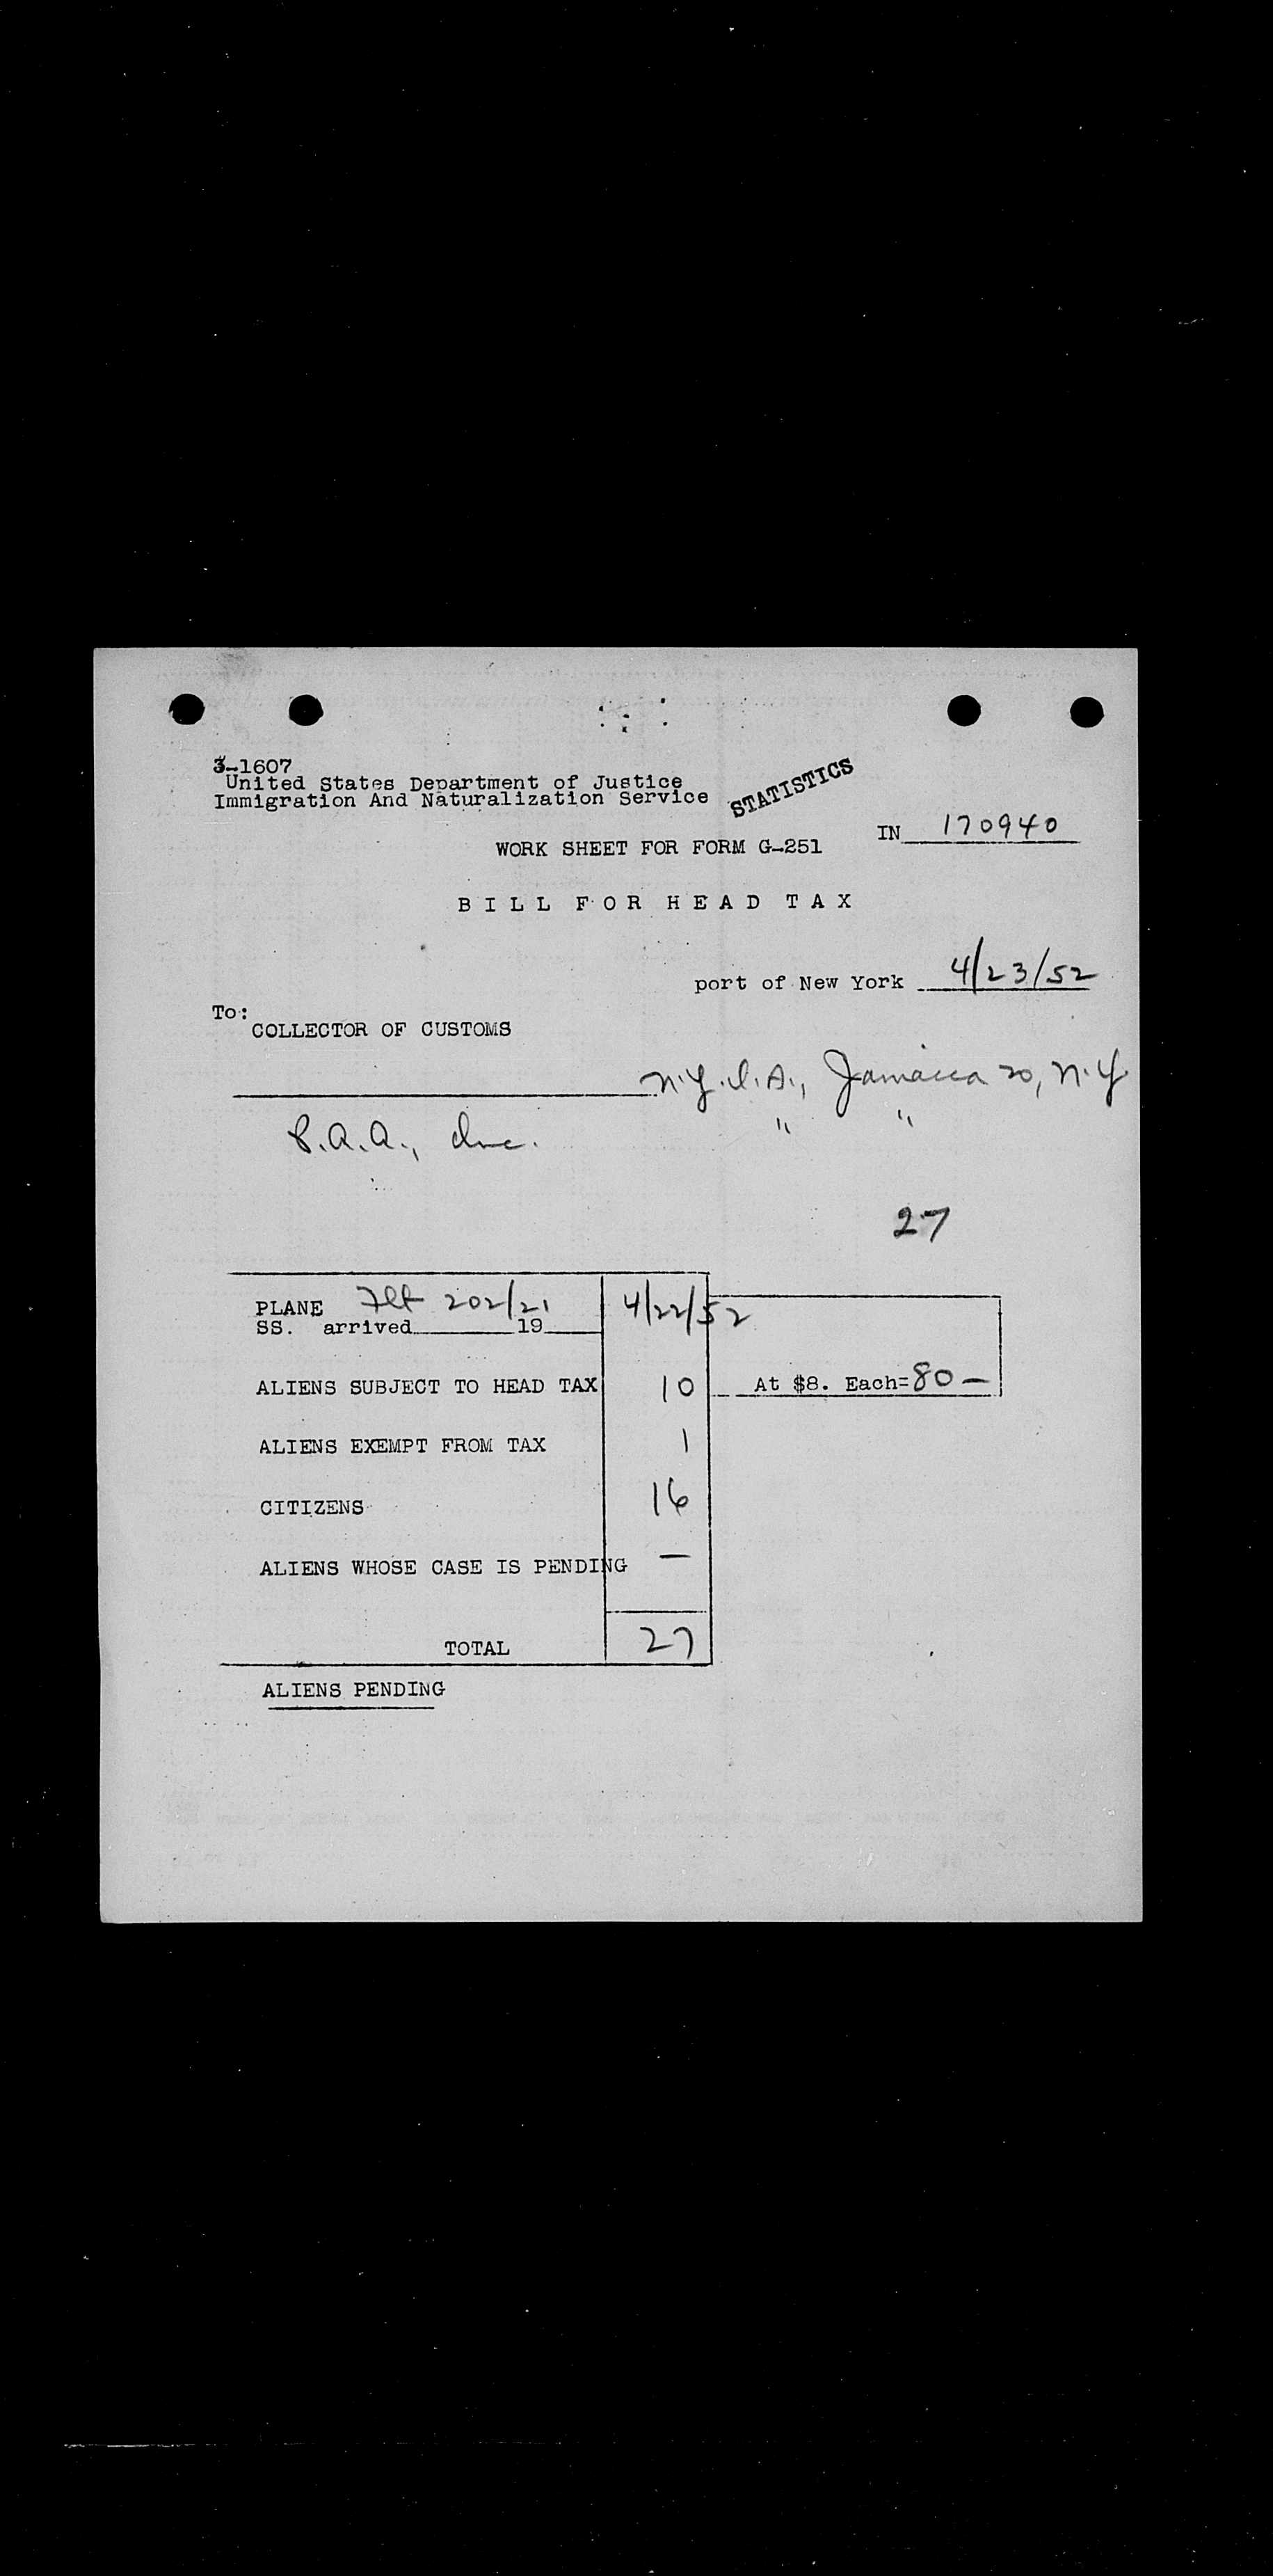 3-1607
United States Department of Justice
Immigration And Naturalization Service
STATISTICS
IN 170940
WORK SHEET FOR FORM G-251
BILL FOR HEAD TAX
port of New York 4/23/52
To:
COLLECTOR OF CUSTOMS
N.Y.I.A., Jamaica 20, N.Y.
P.A.A., Inc. " "
27
PLANE Flt 202/21 4/22/52
SS. arrived 19
ALIENS SUBJECT TO HEAD TAX 10 At $8. Each= 80 —
ALIENS EXEMPT FROM TAX 1
CITIZENS 16
ALIENS WHOSE CASE IS PENDING —
TOTAL 27
ALIENS PENDING